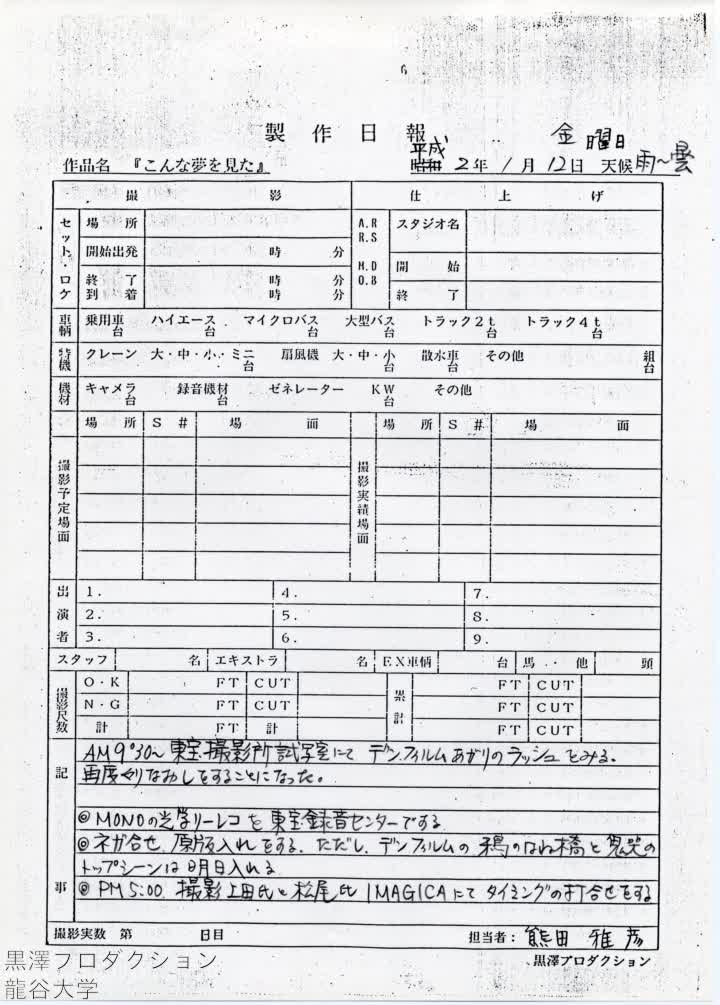 製作日報
金曜日
作品名 『こんな夢を見た』 平成 昭和 2年 1月 12日 天候 雨〜曇
撮影 仕上げ
セット・ロケ 場所 A.R R.S M.D O.B スタジオ名
開始出発 時 分 開始
終了 時 分 終了
到着 時 分
車輌 乗用車 台 ハイエース 台 マイクロバス 台 大型バス 台 トラック2t 台 トラック4t 台
特機 クレーン 大・中・小・ミニ 台 扇風機 大・中・小 台 散水車 台 その他 組 台
機材 キャメラ 台 録音機材 台 ゼネレーター KW 台 その他
場所 S# 場面 場所 S# 場面
撮影予定場面 撮影実績場面
出演者 1. 4. 7.
2. 5. 8.
3. 6. 9.
スタッフ 名 エキストラ 名 EX車輌 台 馬・他 頭
撮影尺数 O・K FT CUT 累計 FT CUT
N・G FT CUT FT CUT
計 FT 計 FT CUT
記事 AM9°30〜 東宝撮影所試写室にて デンフィルムあがりのラッシュをみる。
再度やりなおしをすることになった。
◎MONOの光学リーレコを東宝録音センターでする
◎ネガ合せ、原版入れをする。ただし、デンフィルムの 鴉のはね橋と鬼哭の
トップシーンは明日入れる
◎PM5:00. 撮影上田氏と松尾氏 IMAGICAにて タイミングの打合せをする
撮影実数 第 日目 担当者: 熊田 雅彦
黒澤プロダクション
黒澤プロダクション
龍谷大学